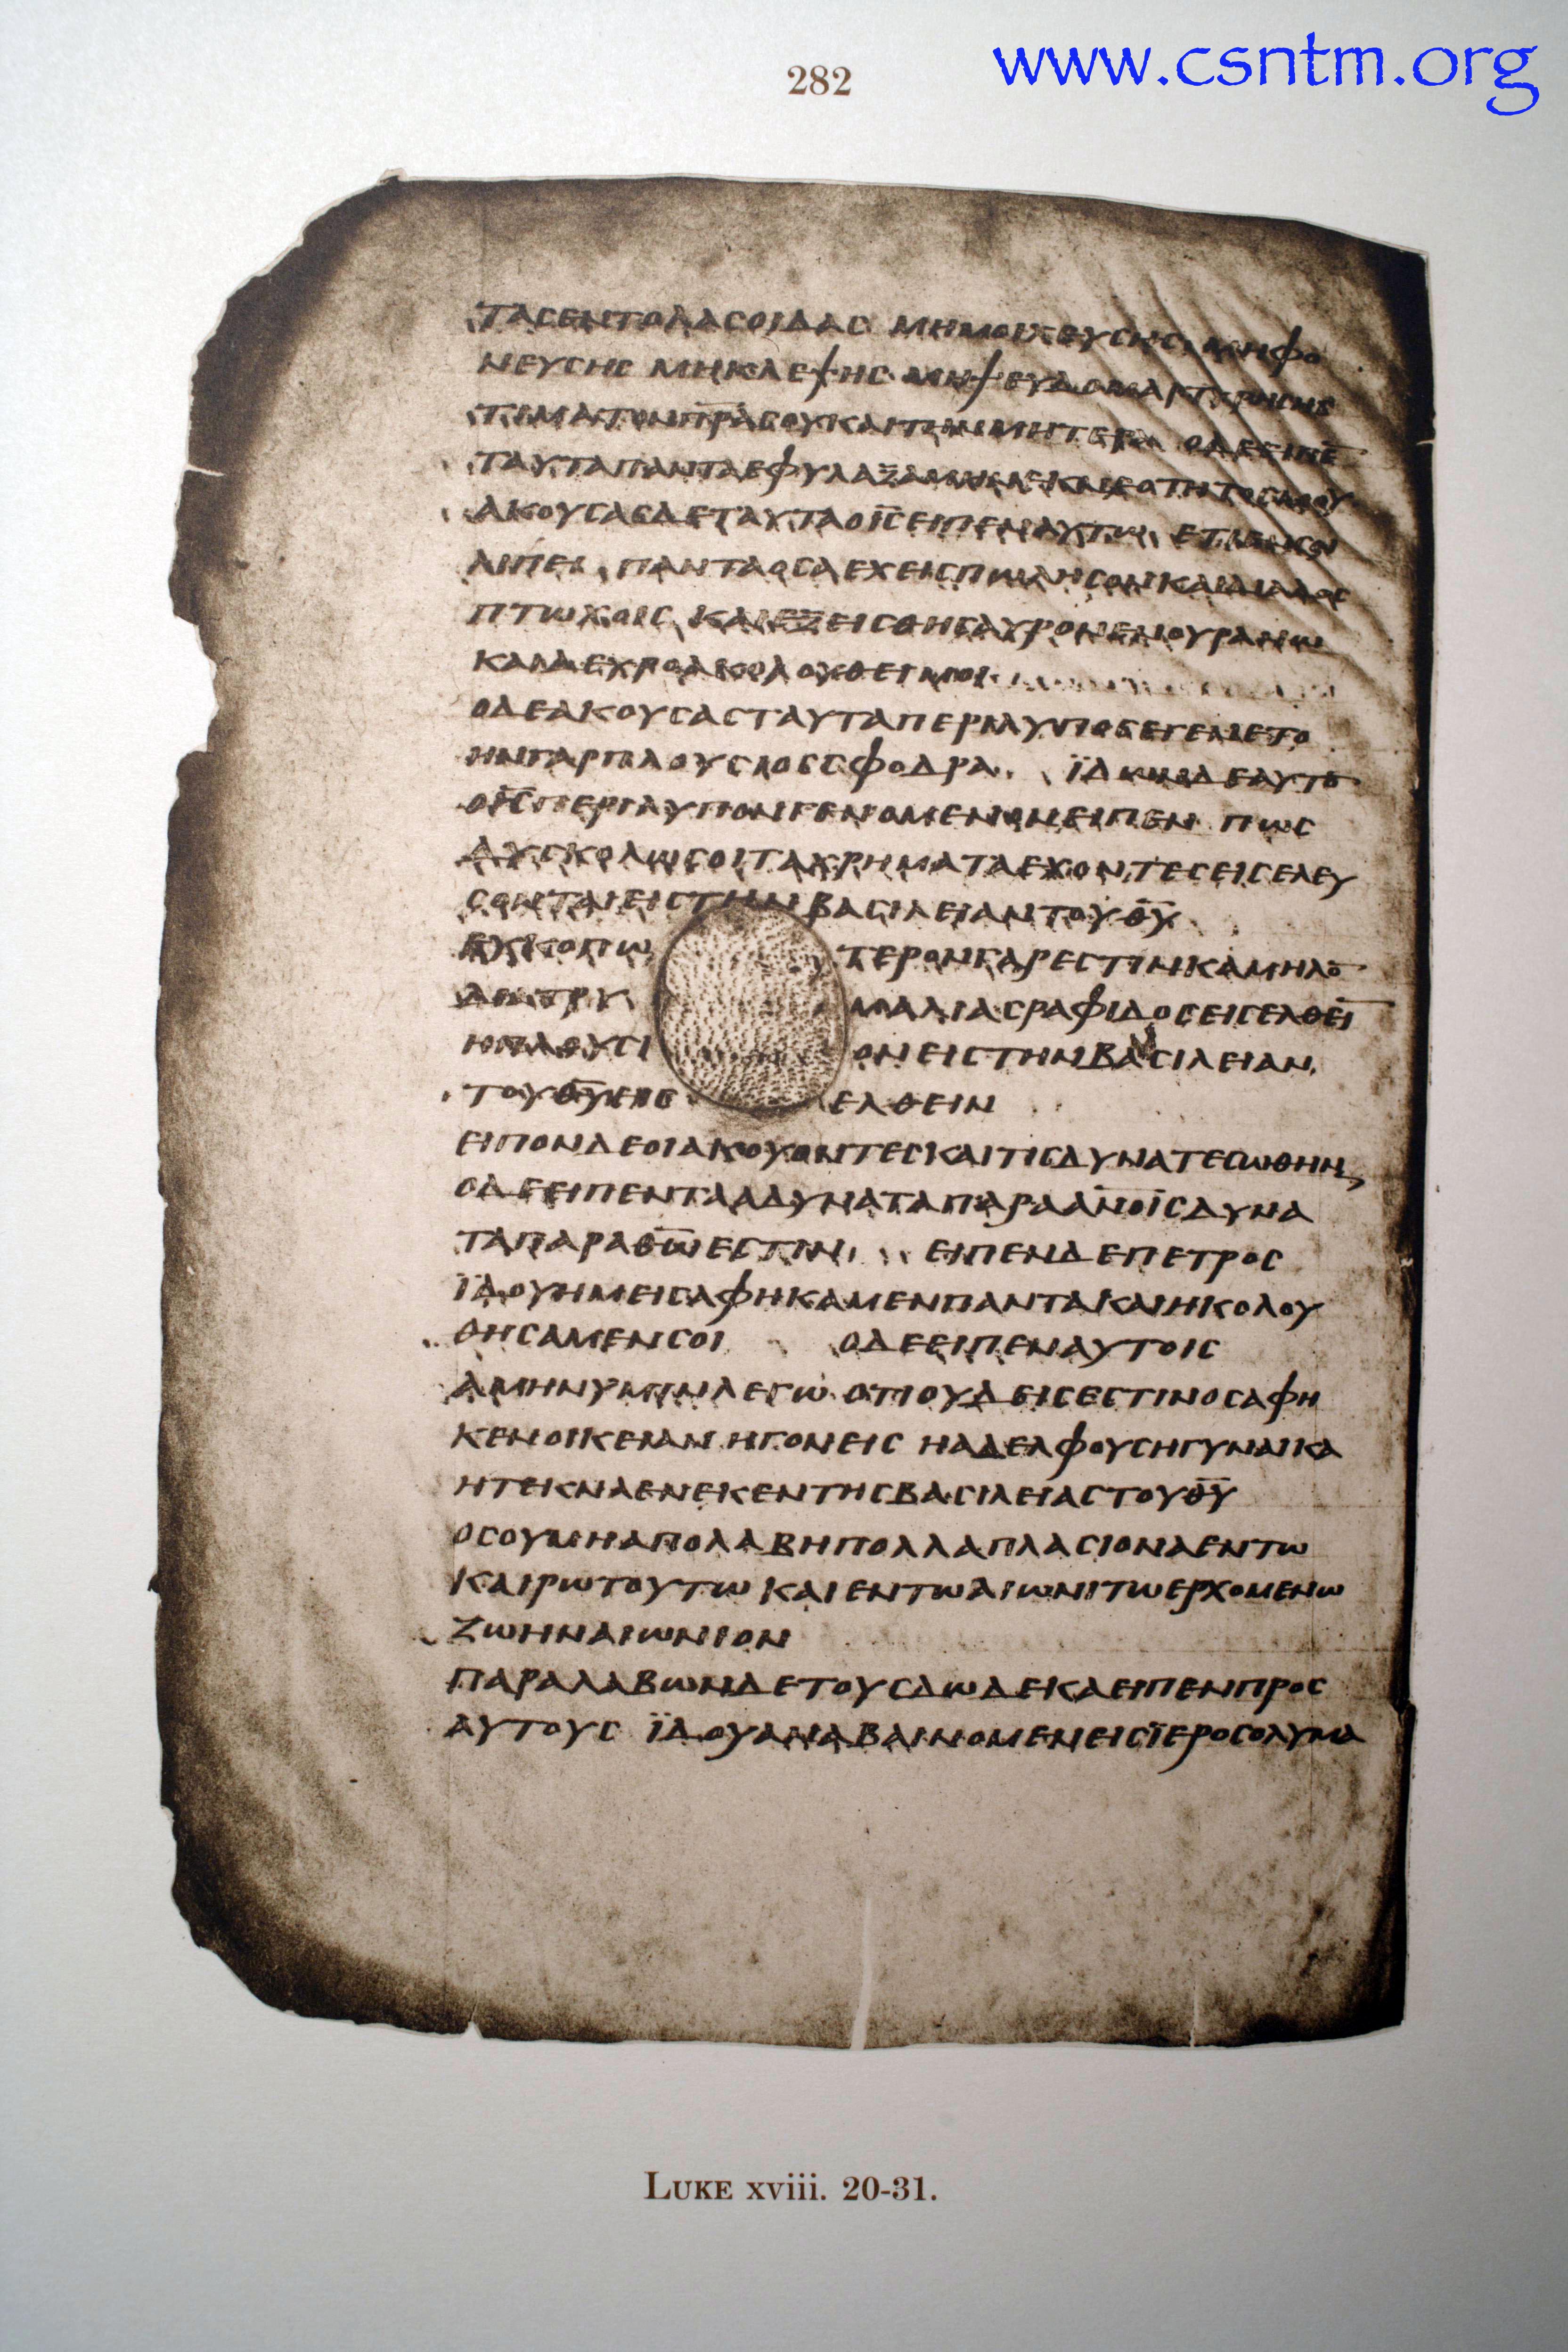 282
www.csntm.org
ΤΑСΕΝΤΟΛΑСΟΙΔΑС ΜΗΜΟΙΧΕΥСΗС ΜΗΦΟ
ΝΕΥСΗС ΜΗΚΛΕΨΗС ΜΗΨΕΥΔΟΜΑΡΤΥΡΗСΗС
ΤΙΜΑΤΟΝΠ̅Ρ̅Α̅СΟΥΚΑΙΤΗΝΜΗΤΕΡΑ ΟΔΕΕΙΠΕ̅
ΤΑΥΤΑΠΑΝΤΑΕΦΥΛΑΞΑΜΗΝΕΚΝΕΟΤΗΤΟСΜΟΥ
ΑΚΟΥСΑСΔΕΤΑΥΤΑΟΙ̅С̅ΕΙΠΕΝΑΥΤΩ ΕΤΙΕΝСΟΙ
ΛΙΠΕΙ ΠΑΝΤΑΟСΑΕΧΕΙСΠΩΛΗСΟΝΚΑΙΔΙΑΔΟС
ΠΤΩΧΟΙС ΚΑΙΕΞΕΙСΘΗСΑΥΡΟΝΕΝΟΥΡΑΝΩ
ΚΑΙΔΕΥΡΟΑΚΟΛΟΥΘΕΙΜΟΙ
ΟΔΕΑΚΟΥСΑСΤΑΥΤΑΠΕΡΙΛΥΠΟСΕΓΕΝΕΤΟ
ΗΝΓΑΡΠΛΟΥСΙΟССΦΟΔΡΑ ΪΔΩΝΔΕΑΥΤΟ̅
ΟΙ̅С̅ΠΕΡΙΛΥΠΟΝΓΕΝΟΜΕΝΟΝΕΙΠΕΝ ΠΩС
ΔΥСΚΟΛΩСΟΙΤΑΧΡΗΜΑΤΑΕΧΟΝΤΕСΕΙСΕΛΕΥ
СΟΝΤΑΙΕΙСΤΗΝΒΑСΙΛΕΙΑΝΤΟΥΘ̅Υ̅
ΕΥΚΟΠΩ ΤΕΡΟΝΓΑΡΕСΤΙΝΚΑΜΗΛΟ̅
ΔΙΑΤΡΥ ΜΑΛΙΑСΡΑΦΙΔΟСΕΙСΕΛΘΕΙ̅
ΗΠΛΟΥСΙ ΟΝΕΙСΤΗΝΒΑСΙΛΕΙΑΝ
ΤΟΥΘ̅Υ̅ΕΙС ΕΛΘΕΙΝ
ΕΙΠΟΝΔΕΟΙΑΚΟΥΟΝΤΕСΚΑΙΤΙСΔΥΝΑΤΕСΩΘΗΝ
ΟΔΕΕΙΠΕΝΤΑΑΔΥΝΑΤΑΠΑΡΑΑ̅Ν̅Ο̅Ι̅С̅ΔΥΝΑ
ΤΑΠΑΡΑΘ̅Ω̅ΕСΤΙΝ ΕΙΠΕΝΔΕΠΕΤΡΟС
ΪΔΟΥΗΜΕΙСΑΦΗΚΑΜΕΝΠΑΝΤΑΚΑΙΗΚΟΛΟΥ
ΘΗСΑΜΕΝСΟΙ ΟΔΕΕΙΠΕΝΑΥΤΟΙС
ΑΜΗΝΥΜΙΝΛΕΓΩ ΟΤΙΟΥΔΕΙСΕСΤΙΝΟСΑΦΗ
ΚΕΝΟΙΚΕΙΑΝ ΗΓΟΝΕΙС ΗΑΔΕΛΦΟΥСΗΓΥΝΑΙΚΑ
ΗΤΕΚΝΑΕΝΕΚΕΝΤΗСΒΑСΙΛΕΙΑСΤΟΥΘ̅Υ̅
ΟСΟΥΜΗΑΠΟΛΑΒΗΠΟΛΛΑΠΛΑСΙΟΝΑΕΝΤΩ
ΚΑΙΡΩΤΟΥΤΩ ΚΑΙΕΝΤΩΑΙΩΝΙΤΩΕΡΧΟΜΕΝΩ
ΖΩΗΝΑΙΩΝΙΟΝ
ΠΑΡΑΛΑΒΩΝΔΕΤΟΥСΔΩΔΕΚΑΕΙΠΕΝΠΡΟС
ΑΥΤΟΥС ΪΔΟΥΑΝΑΒΑΙΝΟΜΕΝΕΙСΪΕΡΟСΟΛΥΜΑ
LUKE xviii. 20-31.